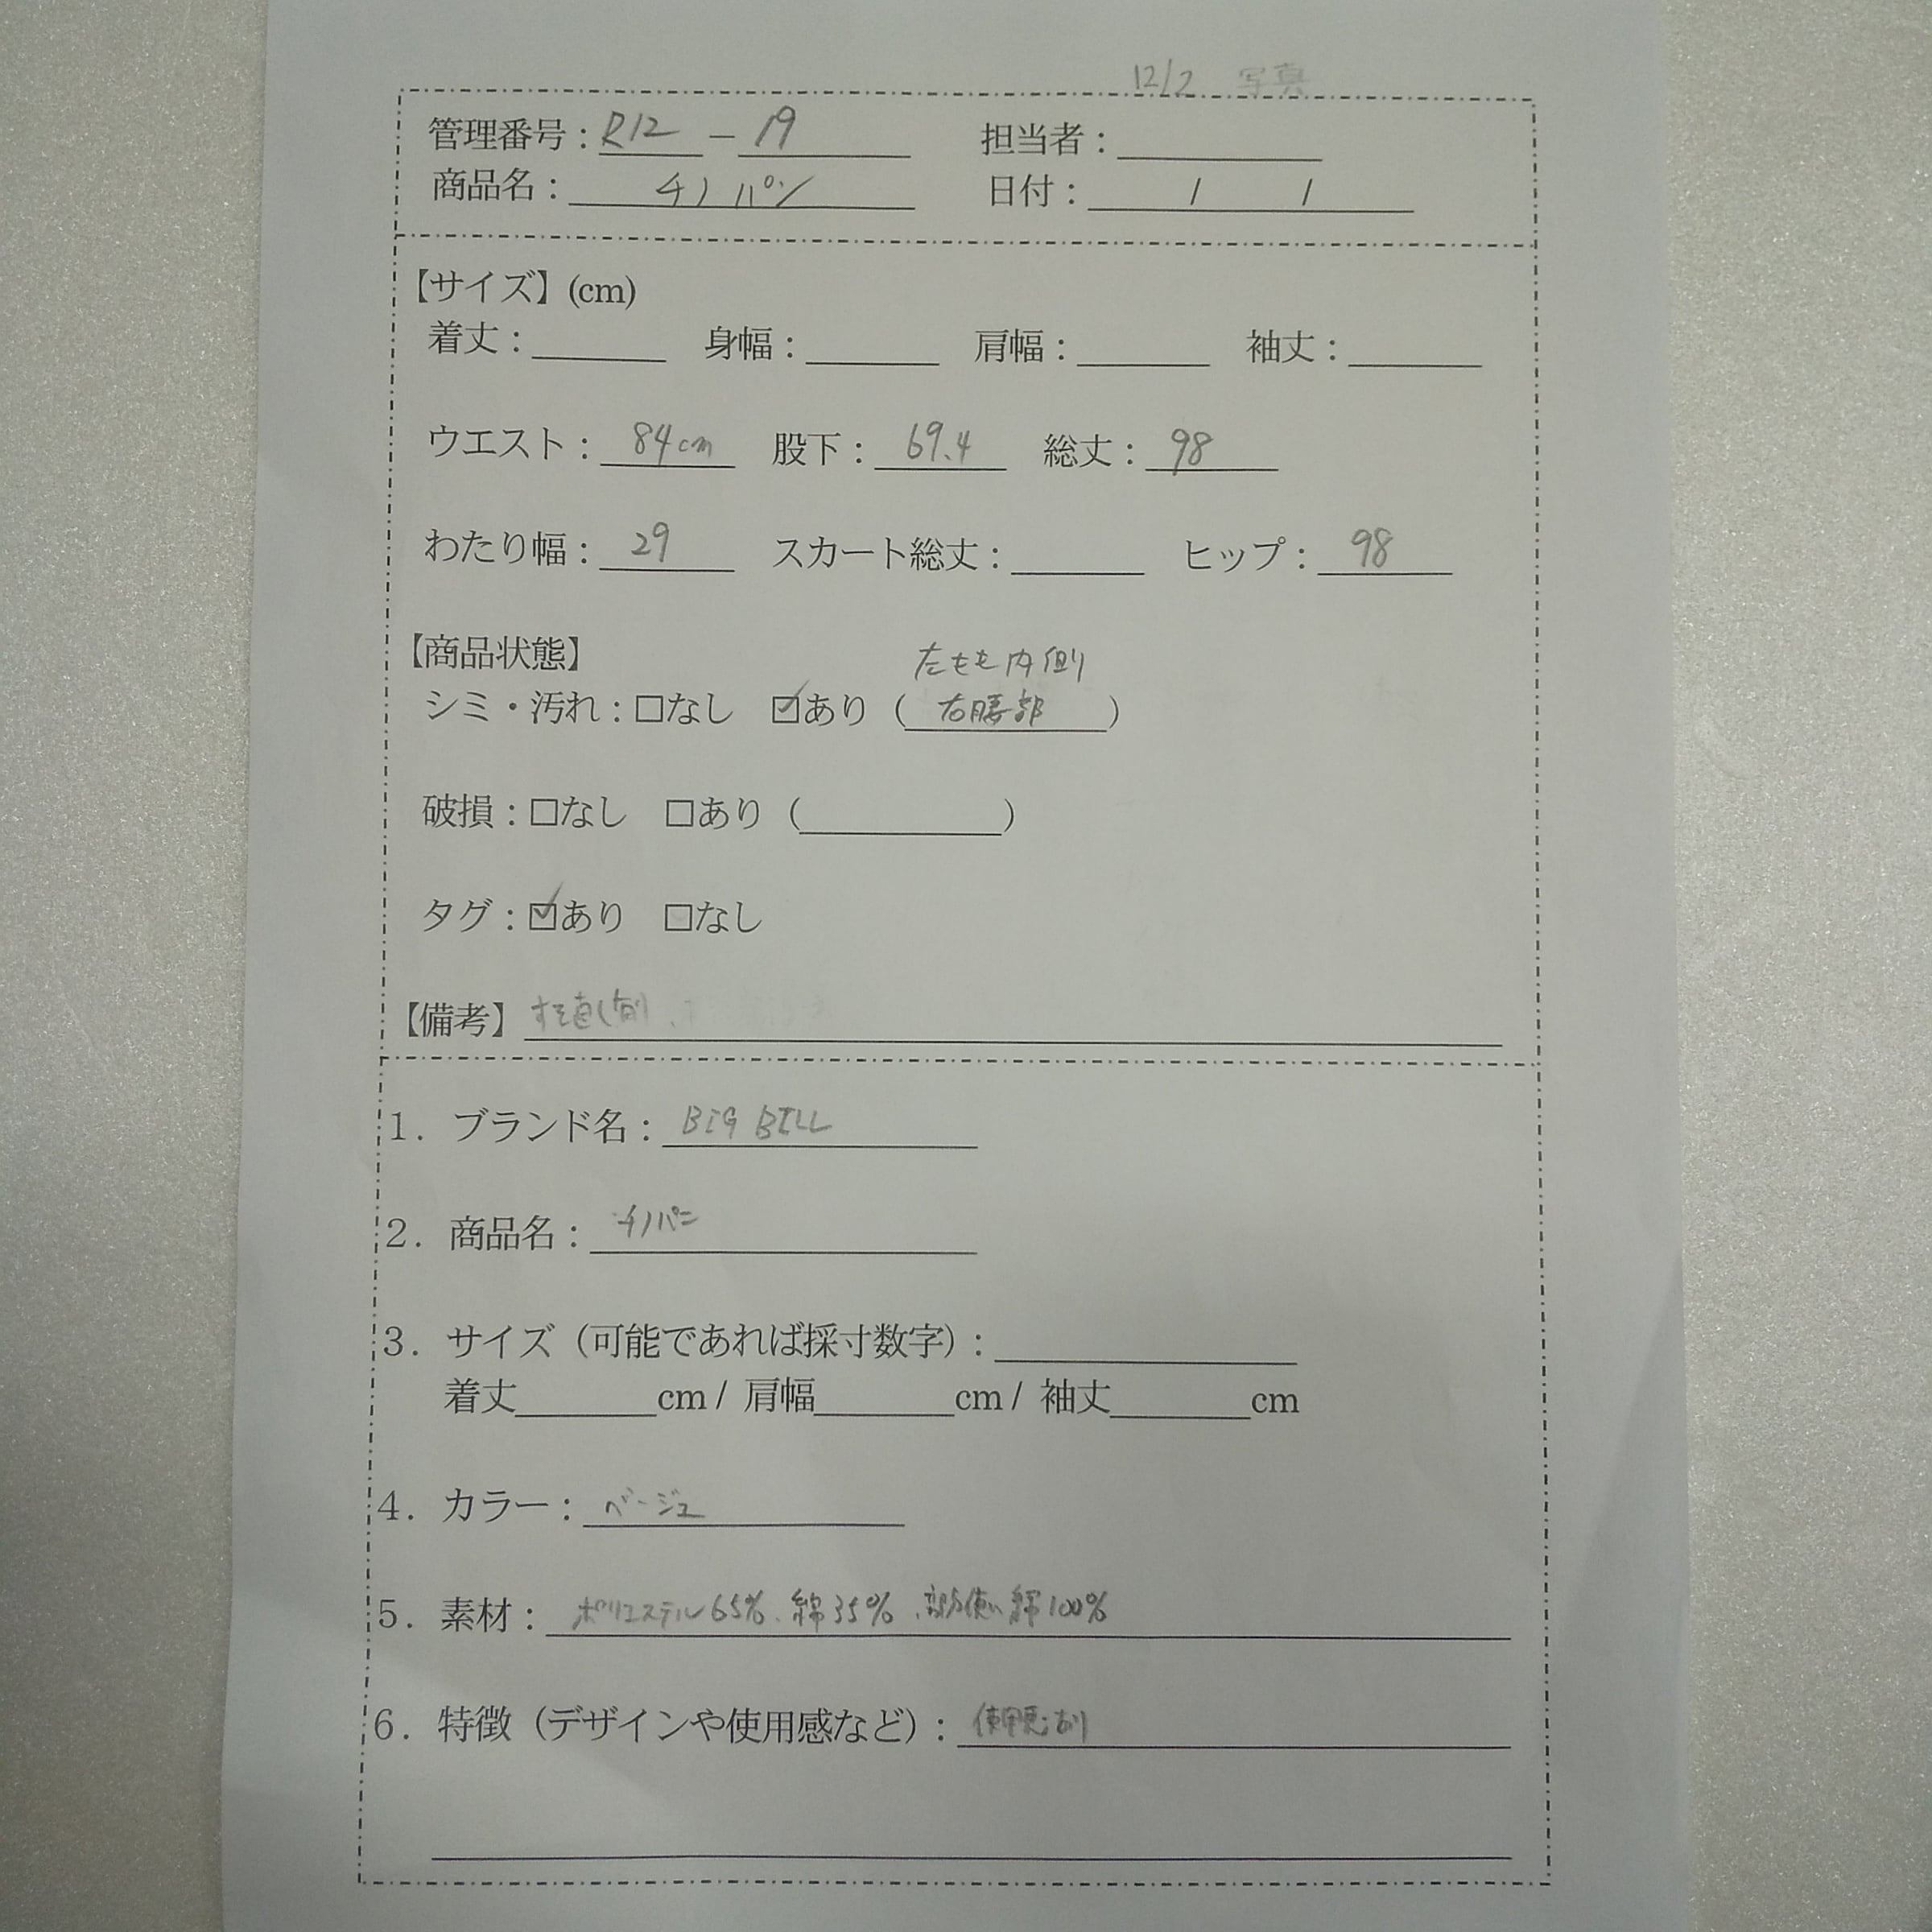 12/2 写真
管理番号：R12 － 19 担当者：
商品名： チノパン 日付： / /
【サイズ】(cm)
着丈： 身幅： 肩幅： 袖丈：
ウエスト： 84cm 股下： 69.4 総丈： 98
わたり幅： 29 スカート総丈： ヒップ： 98
【商品状態】
左もも内側
シミ・汚れ：□なし ☑あり（ 右腰部 ）
破損：□なし □あり（ ）
タグ：☑あり □なし
【備考】 すそ直し有り、
1. ブランド名： BiG BILL
2. 商品名： チノパン
3. サイズ（可能であれば採寸数字）：
着丈 cm / 肩幅 cm / 袖丈 cm
4. カラー： ベージュ
5. 素材： ポリエステル65%、綿35%、部分使い綿100%
6. 特徴（デザインや使用感など）： 使用感あり